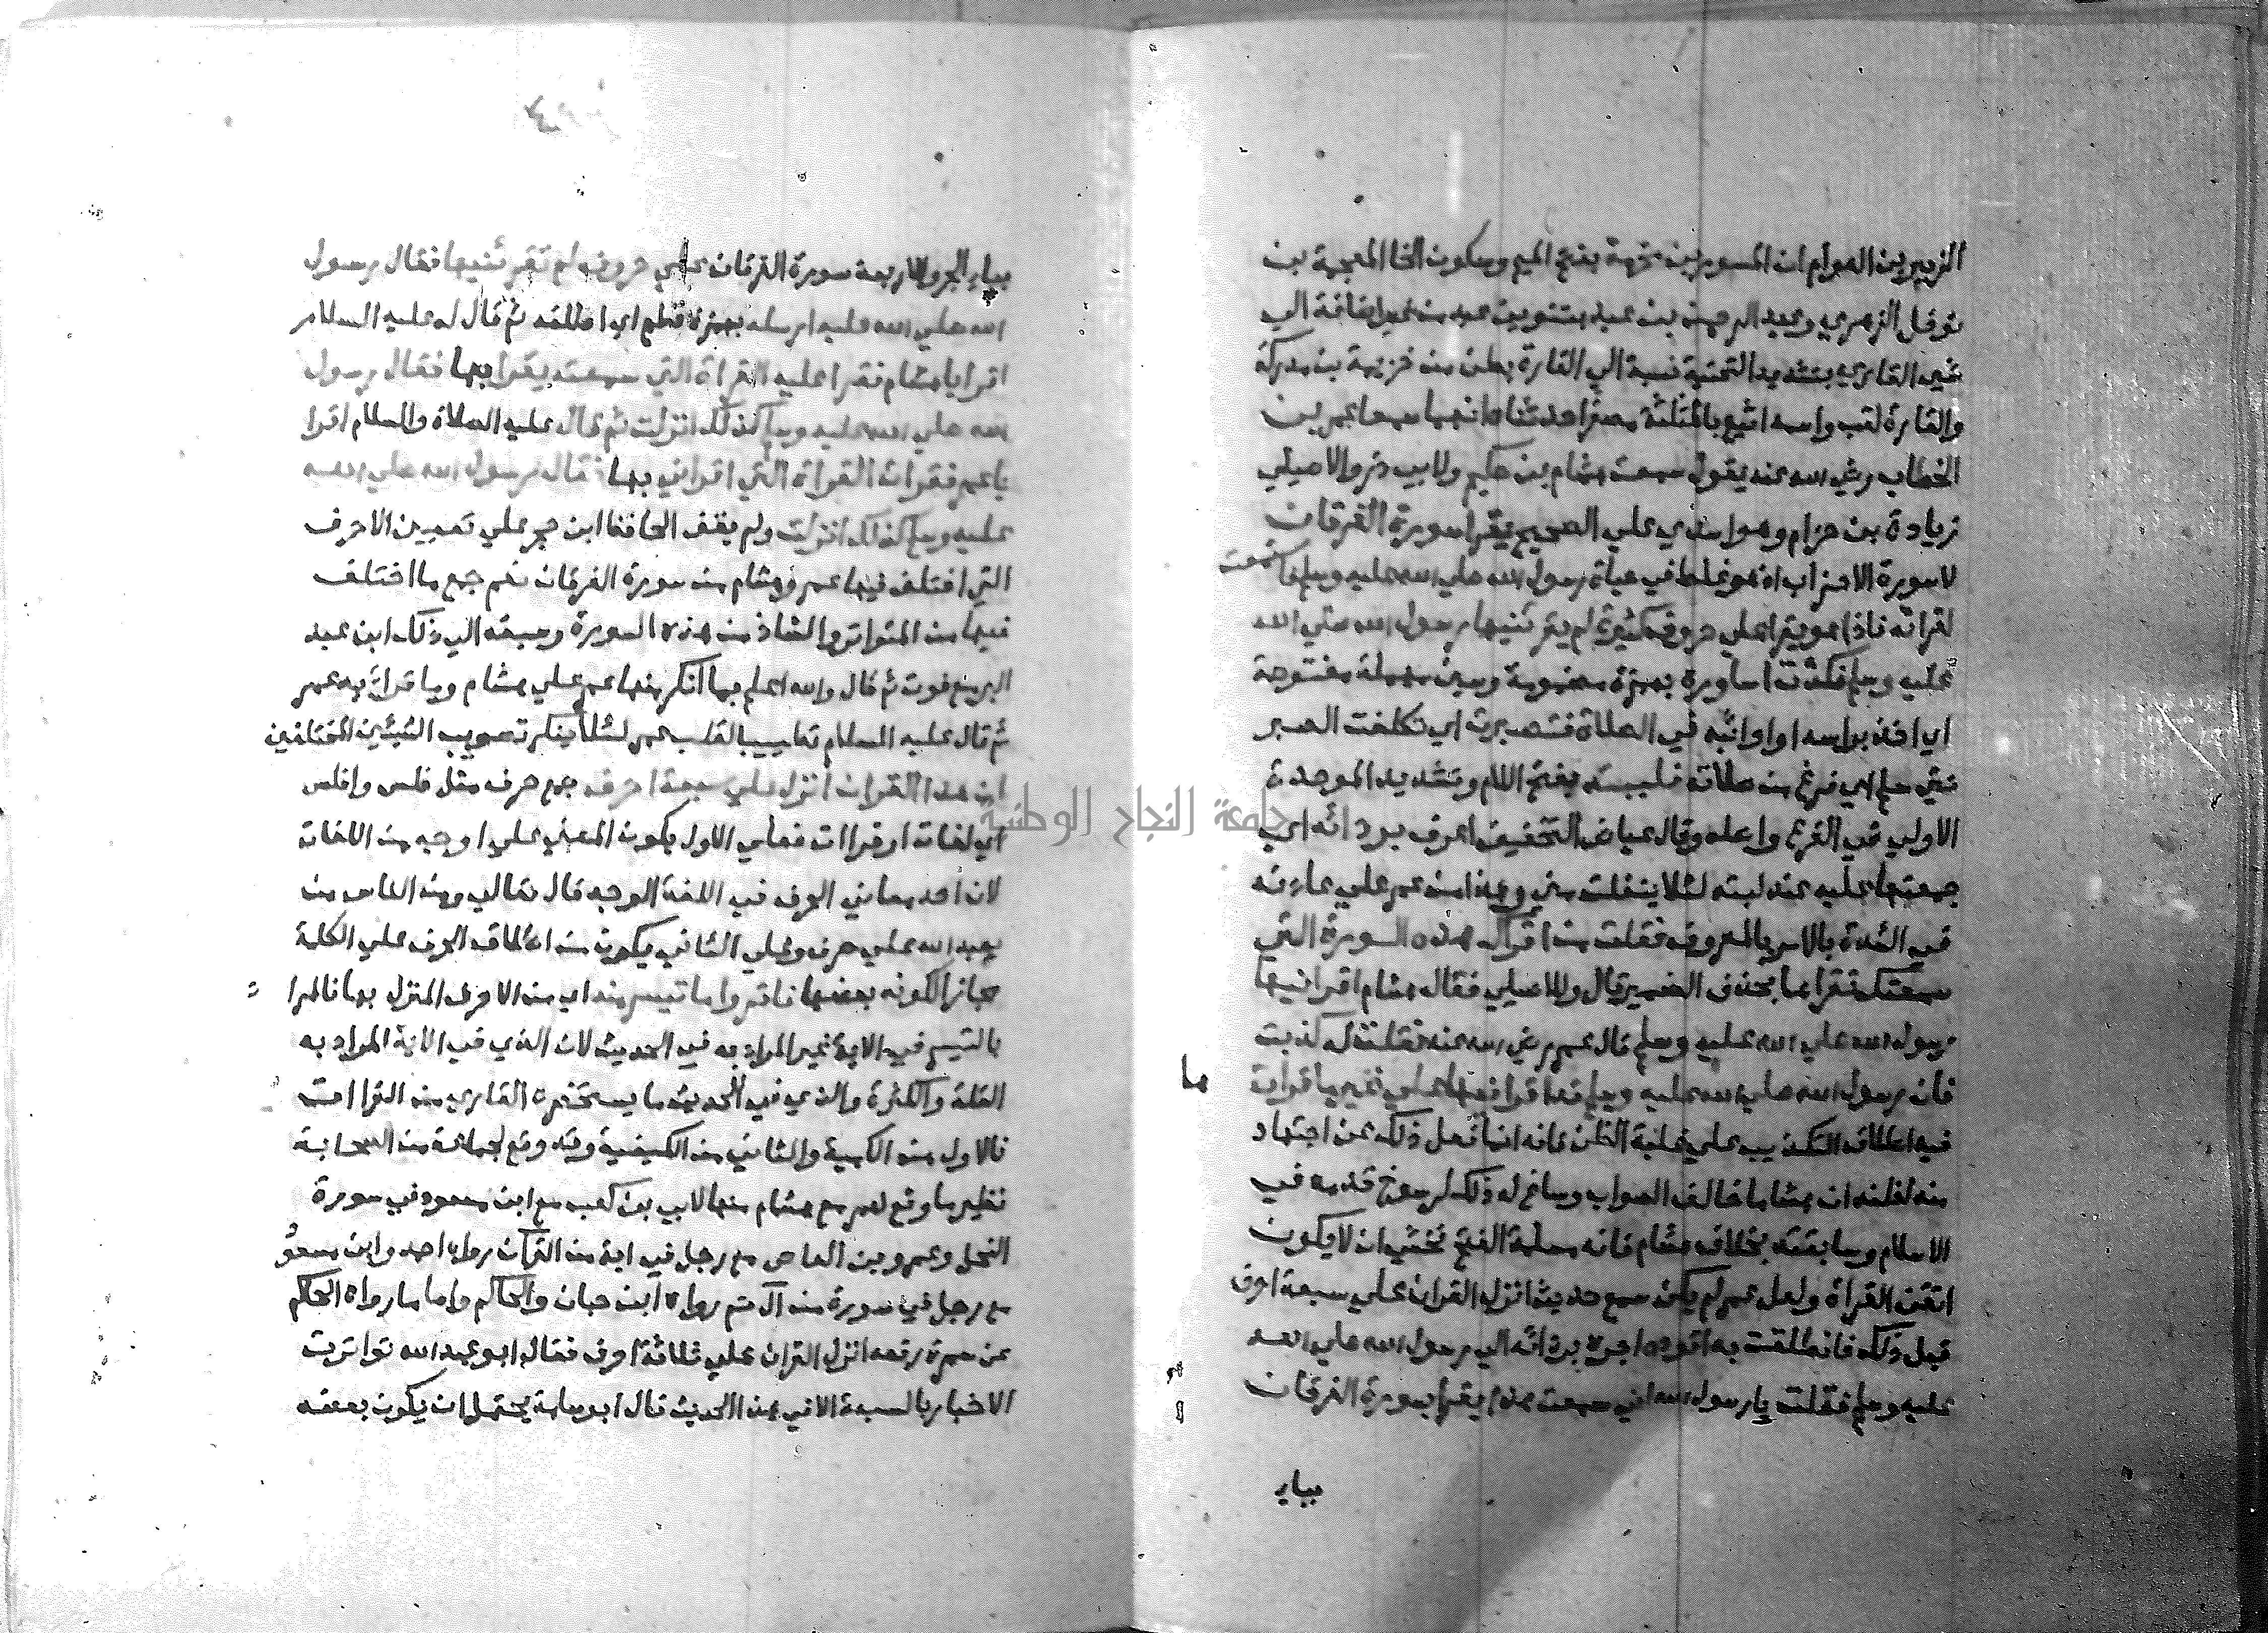 الزبير بن العوام ان المسور بن مخرمة بفتح الميم وسكون الخا المعجمة بن
نوفل الزهري وعبد الرحمن بن عبد بتنوين عبد من غير اضافة الي
شي القاري بتشديد التحتية نسبة الي القارة بطن من خزيمة بن مدركة
والقارة لقب واسمه اثيع بالمثلثة مصغرا حدثناه انهما سمعا عمر بن
الخطاب رضي الله عنه يقول سمعت هشام بن حكيم ولابي ذر والاصيلي
زيادة بن حزام وهو اسدي علي الصحيح يقرا سورة الفرقان
لا سورة الاحزاب اذ هو غلط في حياة رسول الله صلي الله عليه وسلم فاستمعت
لقراته فاذا هو يقرا علي حروف كثيرة لم يقرئنيها رسول الله صلي الله
عليه وسلم فكدت اساوره بهمزة مضمومة وسين مهملة مفتوحة
اي اخذ براسه او اواثبه في الصلاة فتصبرت اي تكلفت الصبر
حتي سلم اي فرغ من صلاته فلببته بفتح اللام وتشديد الموحدة
الاولي في الفرع واصله وقال عياض التخفيف اعرف بردائه اي
جمعتها عليه عند لبته لئلا ينفلت مني وهذا من عمر علي عادته
في الشدة بالامر بالمعروف فقلت من اقراك هذه السورة التي
سمعتك تقراها بحذف الضمير قال وللاصيلي فقال هشام اقرانيها
رسول الله صلي الله عليه وسلم قال عمر رضي الله عنه فقلت له كذبت
فان رسول الله صلي الله عليه وسلم قد اقرانيها علي غير ما قرات
ما
فيه اطلاق التكذيب علي غلبة الظن فانه انما فعل ذلك عن اجتهاد
منه لظنه ان هشاما خالف الصواب وساغ له ذلك لرسوخ قدمه في
الاسلام وسابقته بخلاف هشام فانه مسلمة الفتح فخشي ان لا يكون
اتقن القراة ولعل عمر لم يكن سمع حديث انزل القران علي سبعة احرف
قبل ذلك فانطلقت به اقوده اجره بردائه الي رسول الله صلي الله
عليه وسلم فقلت يا رسول الله اني سمعت هذا يقرا بسورة الفرقان
بباء
بباء الجر ولاربعة سورة الفرقان علي حروف لم تقرئنيها فقال رسول
الله صلي الله عليه ارسله بهمزة قطع اي اطلقه ثم قال له عليه السلام
اقرا يا هشام فقرا عليه القراة التي سمعته يقرا بها فقال رسول
الله صلي الله عليه وسلم كذلك انزلت ثم قال عليه الصلاة والسلام اقرا
يا عمر فقرات القراة التي اقراني بها فقال رسول الله صلي الله
عليه وسلم كذلك انزلت ولم يقف الحافظ ابن حجر علي تعيين الاحرف
التي اختلف فيها عمر وهشام من سورة الفرقان نعم جمع ما اختلف
فيها من المتواتر والشاذ من هذه السورة وسبقه الي ذلك ابن عبد
البر مع فوت ثم قال والله اعلم بما انكر منها عمر علي هشام وما قرا به عمر
ثم قال عليه السلام تطييبا لقلب عمر لئلا ينكر تصويب الشيئين المختلفين
ان هذا القران انزل علي سبعة احرف جمع حرف مثل فلس وافلس
اي لغات او قراات فعلي الاول يكون المعني علي اوجه من اللغات
لان احد معاني الحرف في اللغة الوجه قال تعالي ومن الناس من
يعبد الله علي حرف وعلي الثاني يكون من اطلاق الحرف علي الكلمة
مجازا لكونه بعضها فاقروا ما تيسر منه اي من الاحرف المنزل بها فالمرا
بالتيسر في الاية غير المراد به في الحديث لان الذي في الاية المراد به
القلة والكثرة والذي في الحديث ما يستحضره القاري من القراات
فالاول من الكمية والثاني من الكيفية وقد وقع لجماعة من الصحابة
نظير ما وقع لعمر مع هشام منها لابي بن كعب مع ابن مسعود في سورة
النحل وعمرو بن العاص مع رجل في اية من القرآن رواه احمد وابن مسعود
مع رجل في سورة من آل حم رواه ابن حبان والحاكم واما ما رواه الحاكم
عن سمرة رفعه انزل القران علي ثلاثة احرف فقال ابو عبد الله تواترت
الاخبار بالسبعة الا في هذا الحديث قال ابو شامة يحتمل ان يكون بعضه
جامعة النجاح الوطنية